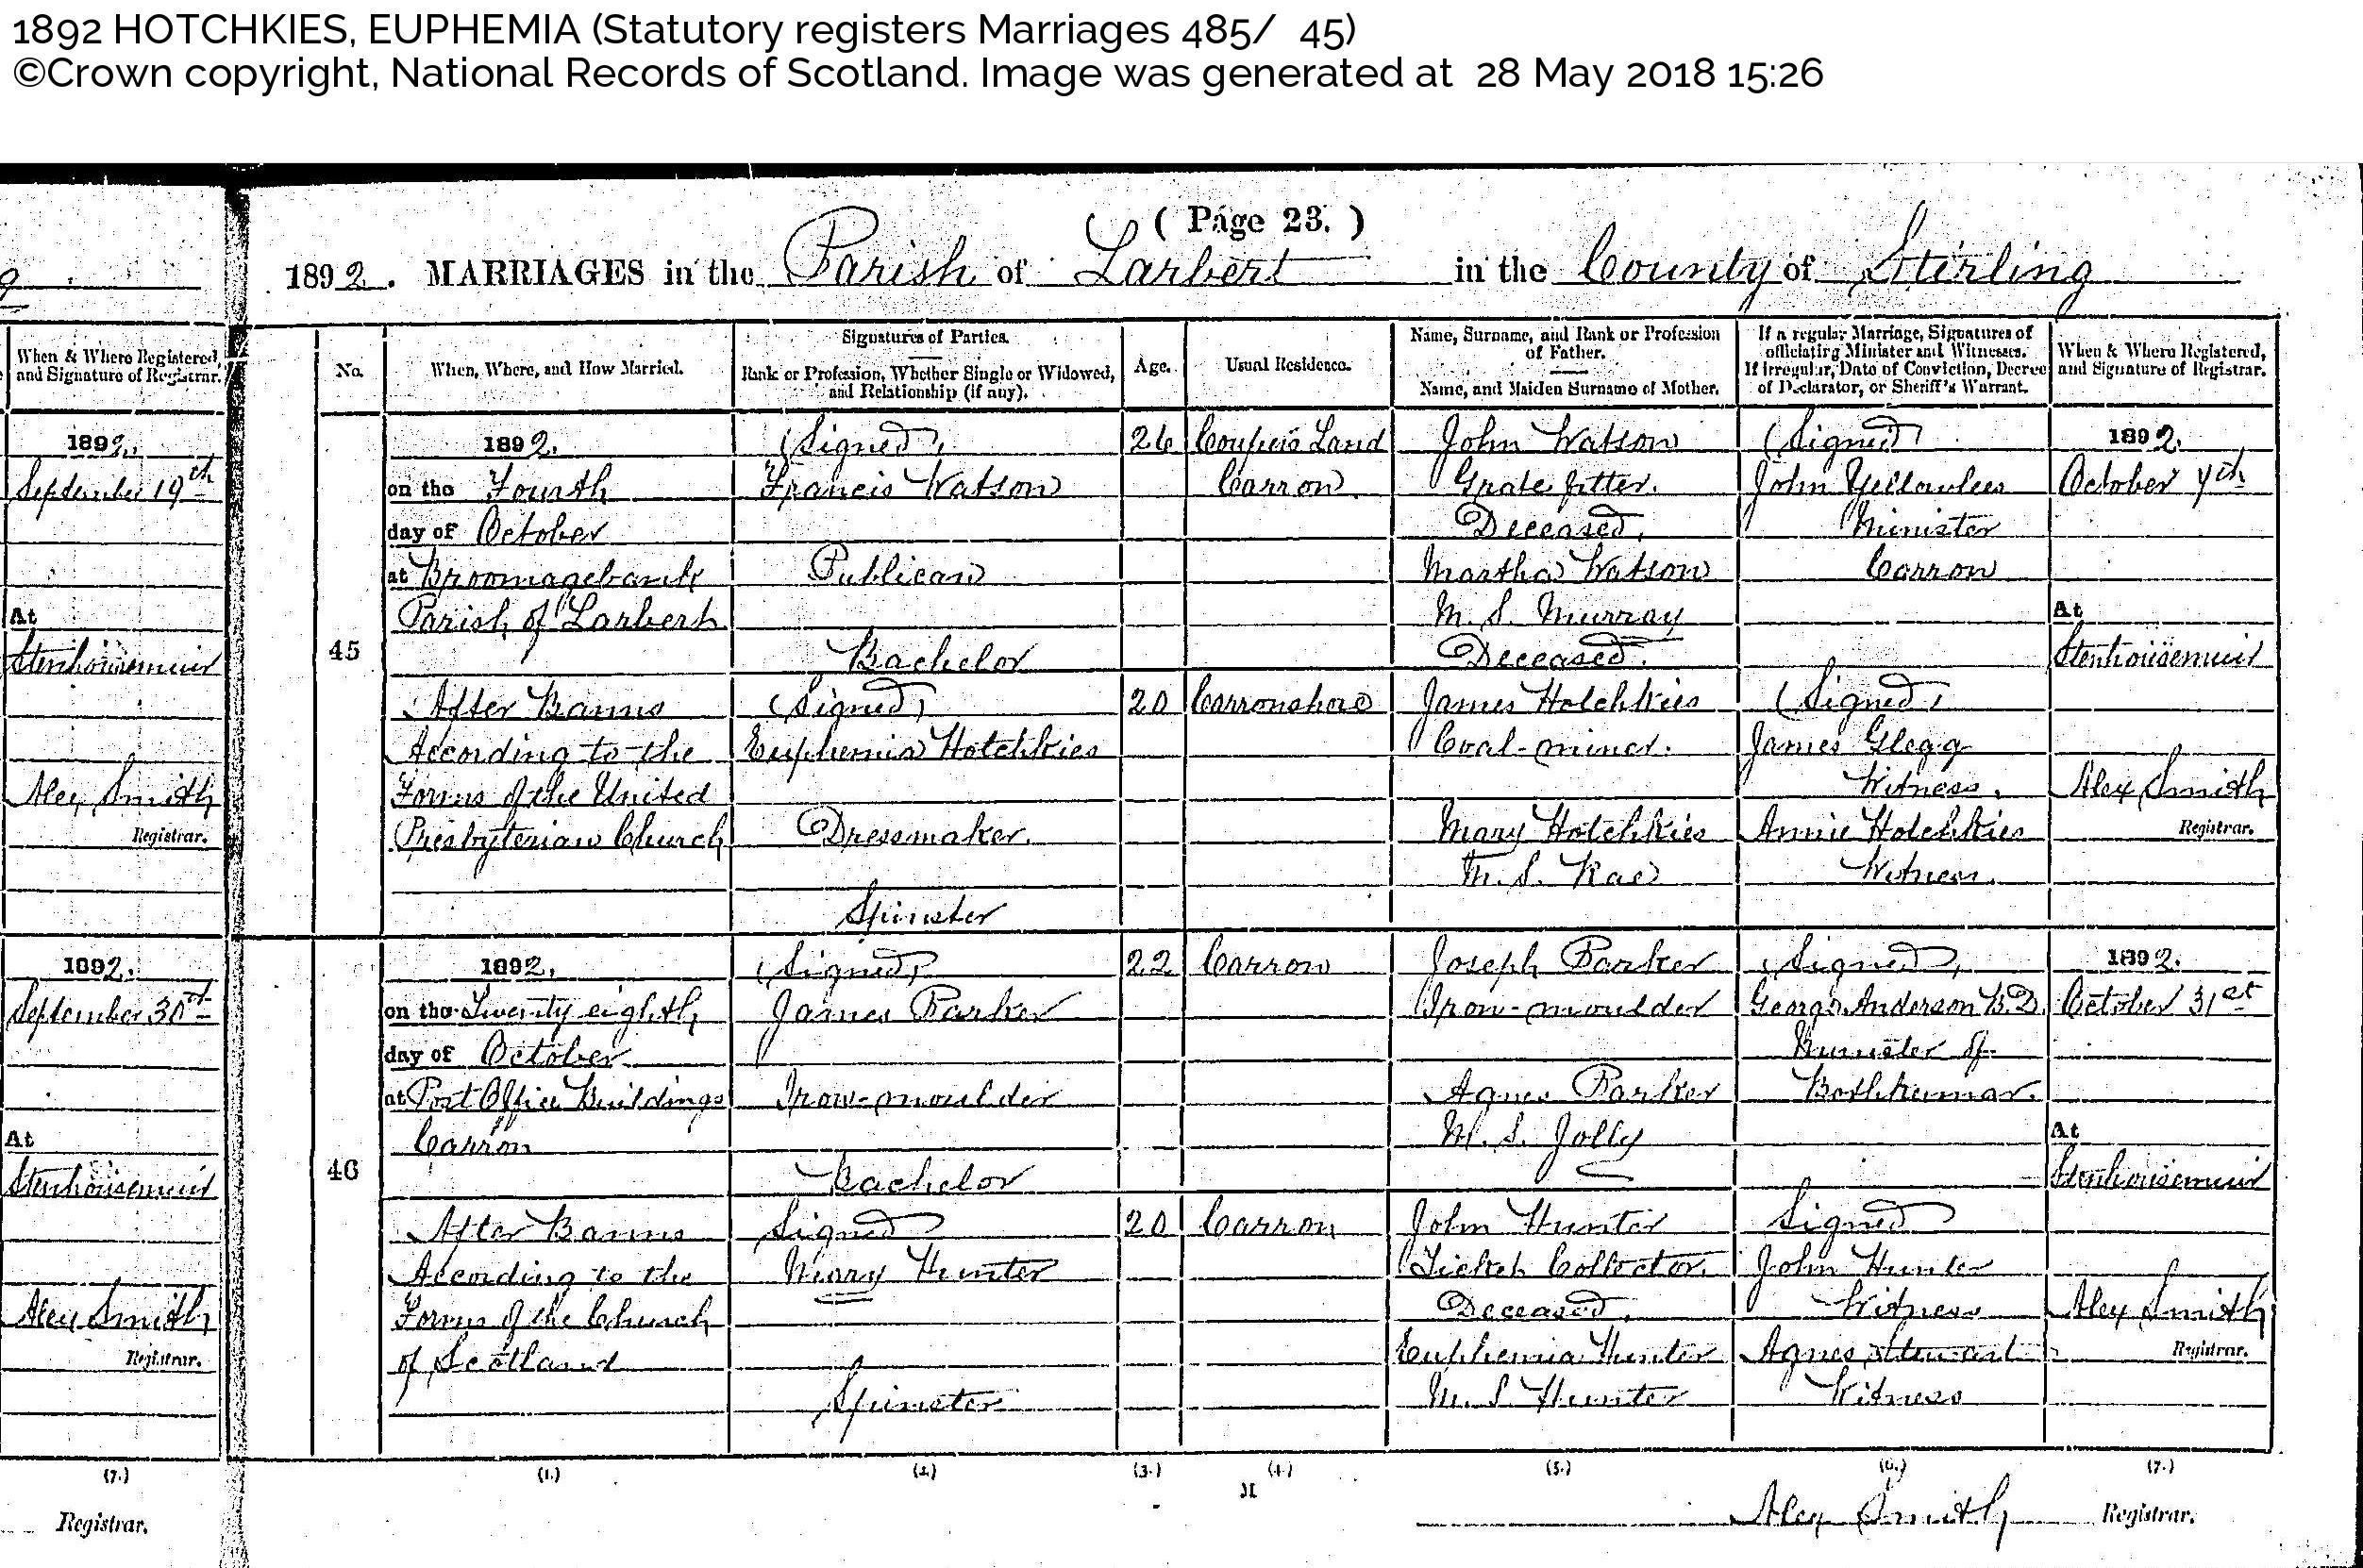 1892 HOTCHKIES, EUPHEMIA (Statutory registers Marriages 485/ 45)
©Crown copyright, National Records of Scotland. Image was generated at 28 May 2018 15:26
( Page 23. )
1892. MARRIAGES in the Parish of Larbert in the County of Stirling
When & Where Registered, and Signature of Registrar.
1892.
September 19th
At
Stenhousemuir
Alex Smith
Registrar.
1892.
September 30th
At
Stenhousemuir
Alex Smith
Registrar.
(7.)
Registrar.
No.
When, Where, and How Married.
Signatures of Parties.
Rank or Profession, Whether Single or Widowed,
and Relationship (if any).
Age.
Usual Residence.
Name, Surname, and Rank or Profession
of Father.
Name, and Maiden Surname of Mother.
If a regular Marriage, Signatures of
officiating Minister and Witnesses.
If irregular, Date of Conviction, Decree
of Declarator, or Sheriff's Warrant.
When & Where Registered,
and Signature of Registrar.
45
1892.
on the Fourth
day of October
at Broomagebank
Parish of Larbert
After Banns
According to the
Forms of the United
Presbyterian Church
(Signed)
Francis Watson
Publican
Bachelor
(Signed)
Euphemia Hotchkies
Dressmaker.
Spinster
26
20
Land
Carron
Carronshore
John Watson
Grate fitter.
Deceased.
Martha Watson
M. S. Murray
Deceased.
James Hotchkies
Coal-miner.
Mary Hotchkies
M. S. Rae
(Signed)
John Yellowlees
Minister
Carron
(Signed)
James Glegg
Witness.
Annie Hotchkies
Witness.
1892.
October 4th
At
Stenhousemuir
Alex Smith
Registrar.
46
1892.
on the Twenty eighth
day of October
at Post Office Buildings
Carron
After Banns
According to the
Forms of the Church
of Scotland
(Signed)
James Parker
Iron-moulder
Bachelor
Signed
Mary Hunter
Spinster
22
20
Carron
Carron
Joseph Parker
Iron-moulder
Agnes Parker
M. S. Jolly
John Hunter
Ticket Collector.
Deceased.
Euphemia Hunter
M. S. Hunter
(Signed)
George Anderson B.D.
Minister of
Bothkennar.
Signed
John Hunter
Witness
Agnes Stewart
Witness
1892.
October 31st
At
Stenhousemuir
Alex Smith
Registrar.
(1.)
(2.)
(3.)
(4.)
(5.)
(6.)
(7.)
M
Alex Smith Registrar.